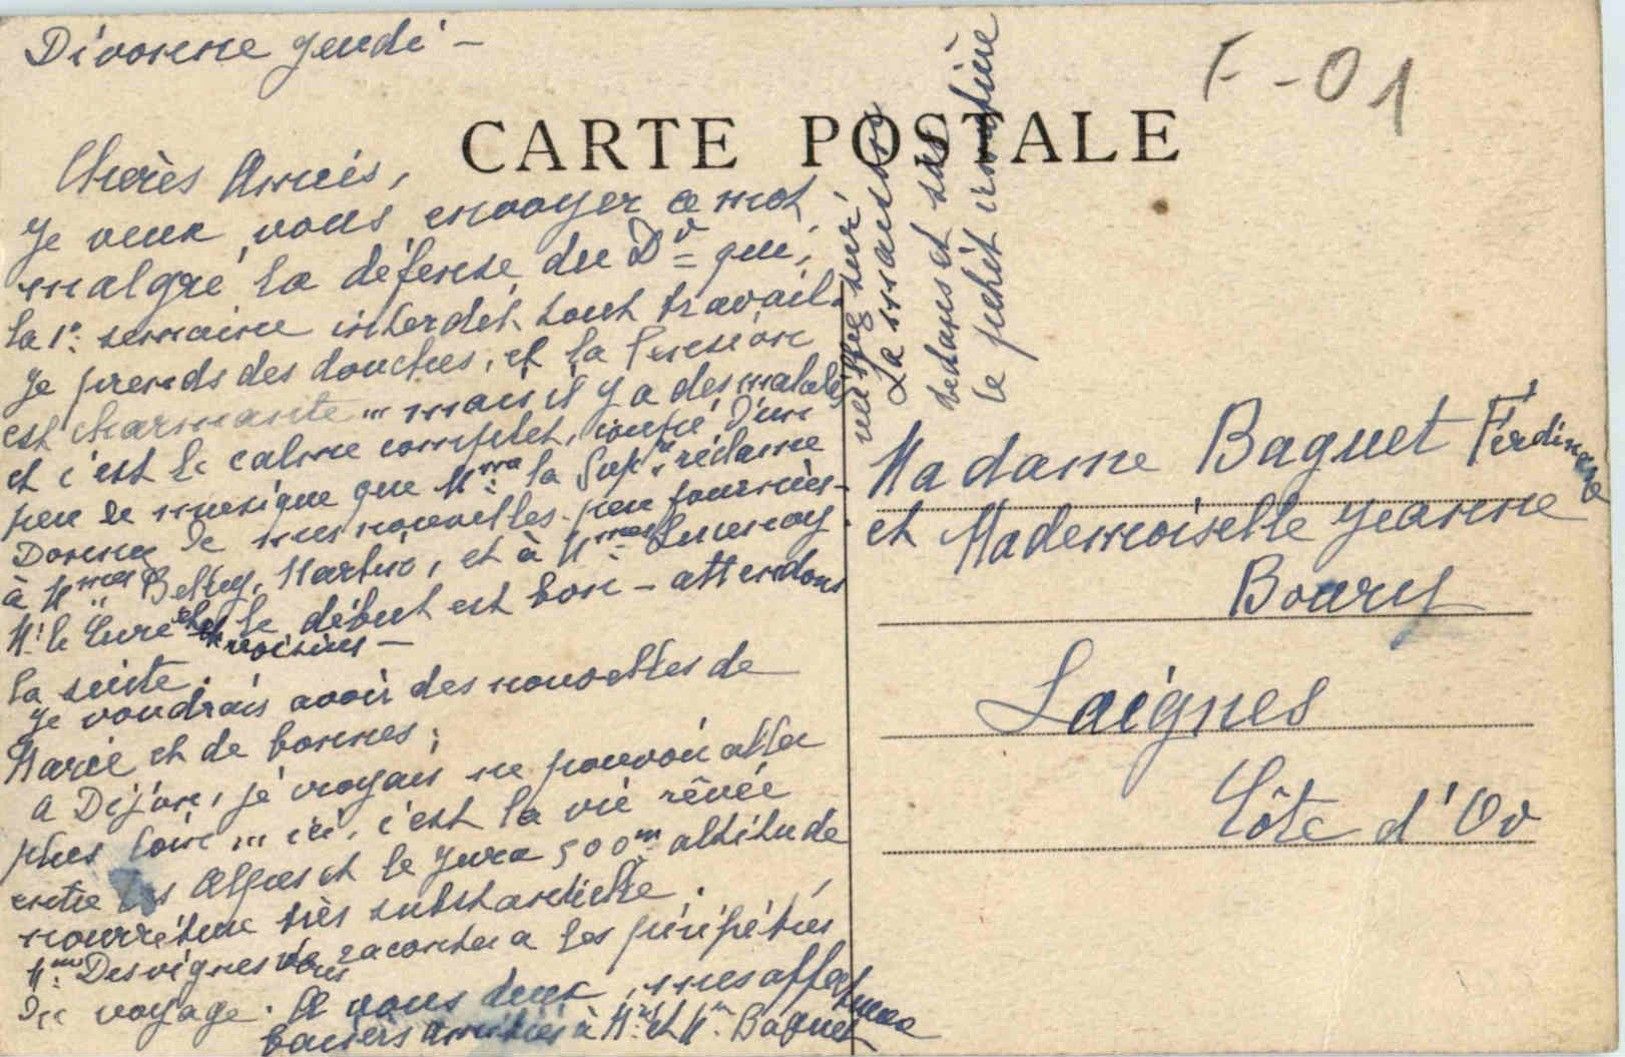 Divonne Jeudi -
F - 01
CARTE POSTALE
Chères Amies,
Je veux vous envoyer ce mot
malgré la défense du Dr qui,
la 1e semaine interdit tout travail.
Je prends des douches, et la pension
est charmante ... mais il y a des malades
et c'est le calme complet, coupé d'un
peu de musique que Mme la Supre réclame
Donnez de mes nouvelles peu fournies
à Mmes Martin, et à Mme
Mr le Curé et voisins - le début est bon - attendons
la suite.
Je voudrais avoir des nouvelles de
Marie et de bonnes;
A Dijon, je croyais ne pouvoir aller
plus loin ... ici, c'est la vie rêvée
entre les Alpes et le Jura 500m altitude
nourriture très substantielle.
Mme Desvignes vous racontera les péripéties
du voyage. A vous deux, mes affectueux
baisers amitiés à Mr et Mme Baguet
La maison
dedans et sur
le petit
Madame Baguet Ferdinand
et Mademoiselle Jeanne
Boury
Laignes
Côte d'Or